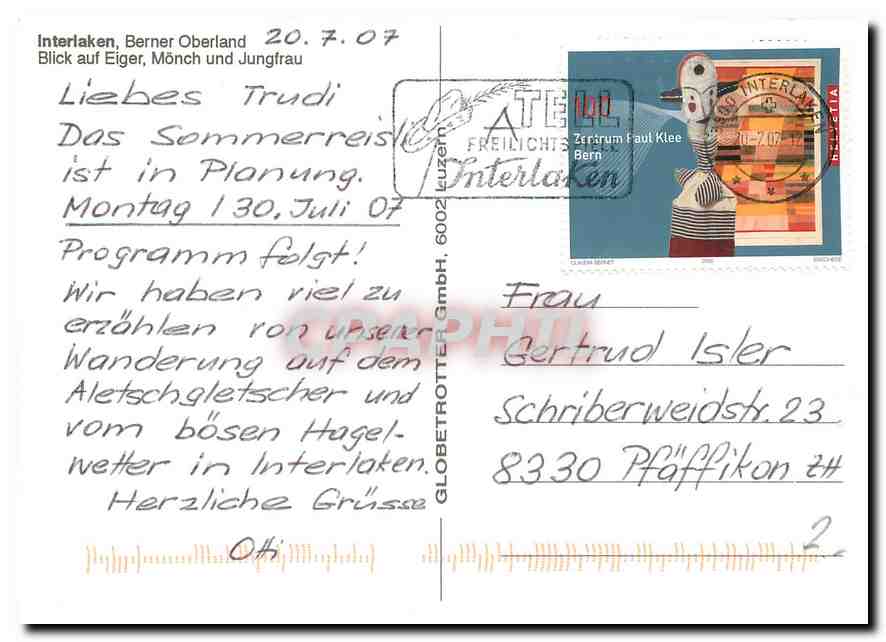 Interlaken, Berner Oberland
Blick auf Eiger, Mönch und Jungfrau
20.7.07
Liebes Trudi
Das Sommerreisli
ist in Planung.
Montag / 30. Juli 07
Programm folgt!
Wir haben viel zu
erzählen von unserer
Wanderung auf dem
Aletschgletscher und
vom bösen Hagel-
wetter in Interlaken.
Herzliche Grüsse
Otti
GLOBETROTTER GmbH, 6002 Luzern
TELL
FREILICHTSPIELE
Interlaken
100
Zentrum Paul Klee
Bern
HELVETIA
INTERLAKEN
Frau
Gertrud Isler
Schriberweidstr. 23
8330 Pfäffikon ZH
2
CPAPHTI